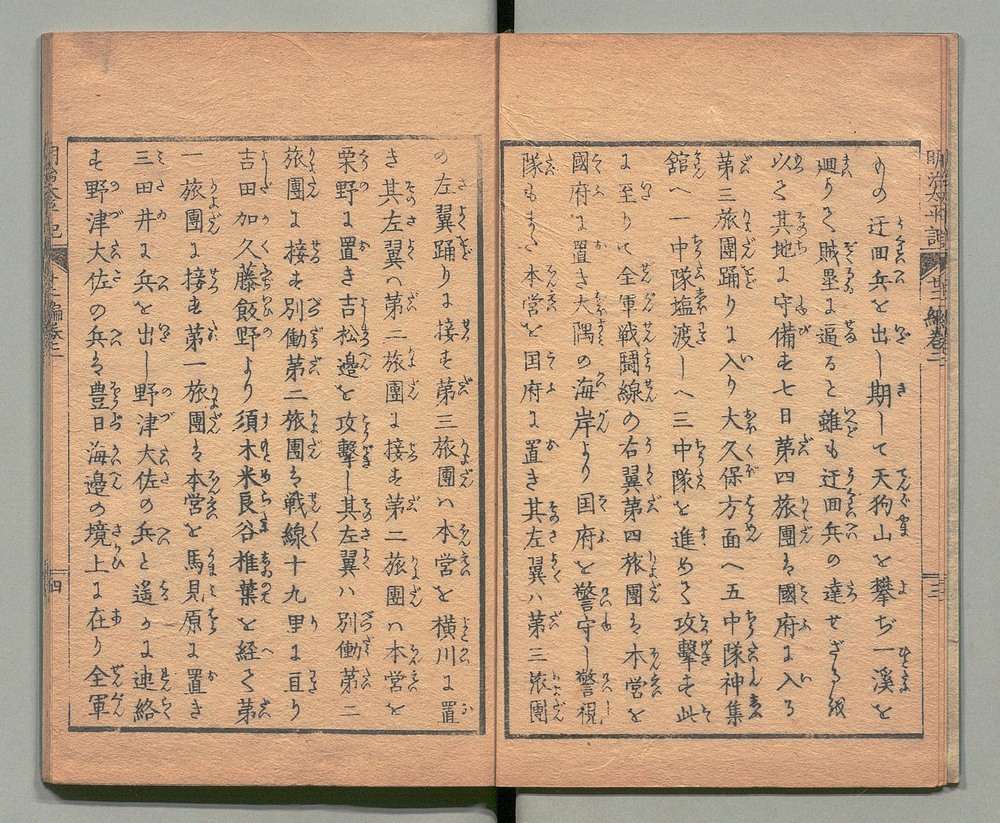 もの迂回兵を出し期して天狗山を攀ぢ一溪を
廻りて賊塁に逼ると雖も迂回兵の達せざるを以
以て其地に守備す七日第四旅團は國府に入る
第三旅團踊りに入り大久保方面へ五中隊神集
舘へ一中隊塩渡しへ三中隊を進めて攻撃す此
に至りて全軍戦闘線の右翼第四旅團は本営を
國府に置き大隅の海岸より国府を警守し警視
隊もまた本営を国府に置き其左翼ハ第三旅團
の左翼踊りに接す第三旅團ハ本営を横川に置
き其左翼ハ第二旅團に接す第二旅團ハ本営を
栗野に置き吉松邊を攻撃し其左翼ハ別働第二
旅團に接す別働第二旅團は戦線十九里に亘り
吉田加久藤飯野より須木米良谷椎葉を経て第
一旅團に接す第一旅團は本営を馬見原に置き
三田井に兵を出し野津大佐の兵と遙かに連絡
す野津大佐の兵は豊日海邊の境上に在り全軍
明治太平記
廿二編巻二
三
四